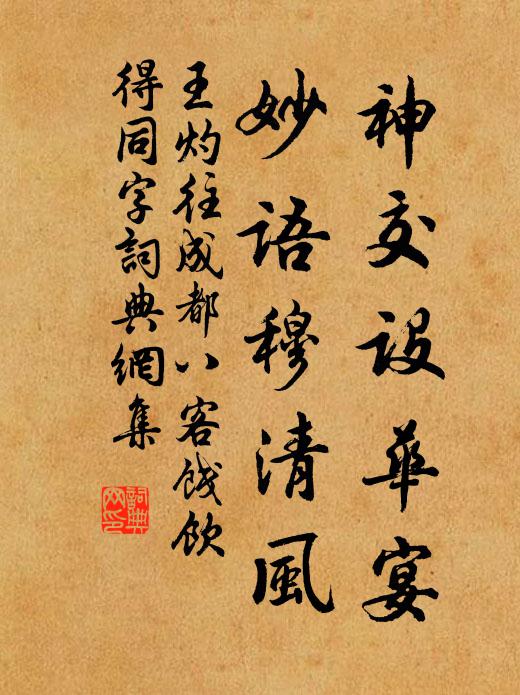 神交設華宴
妙語穆清風
王灼往成都八客餞飲
得同字詞典網集
詞典网印